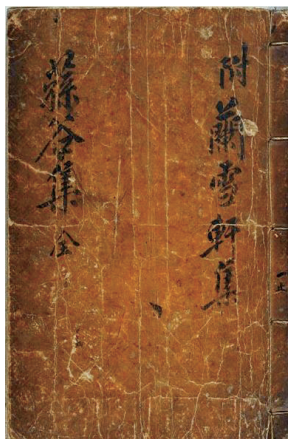 附蘭雪軒集
蓀谷集 全